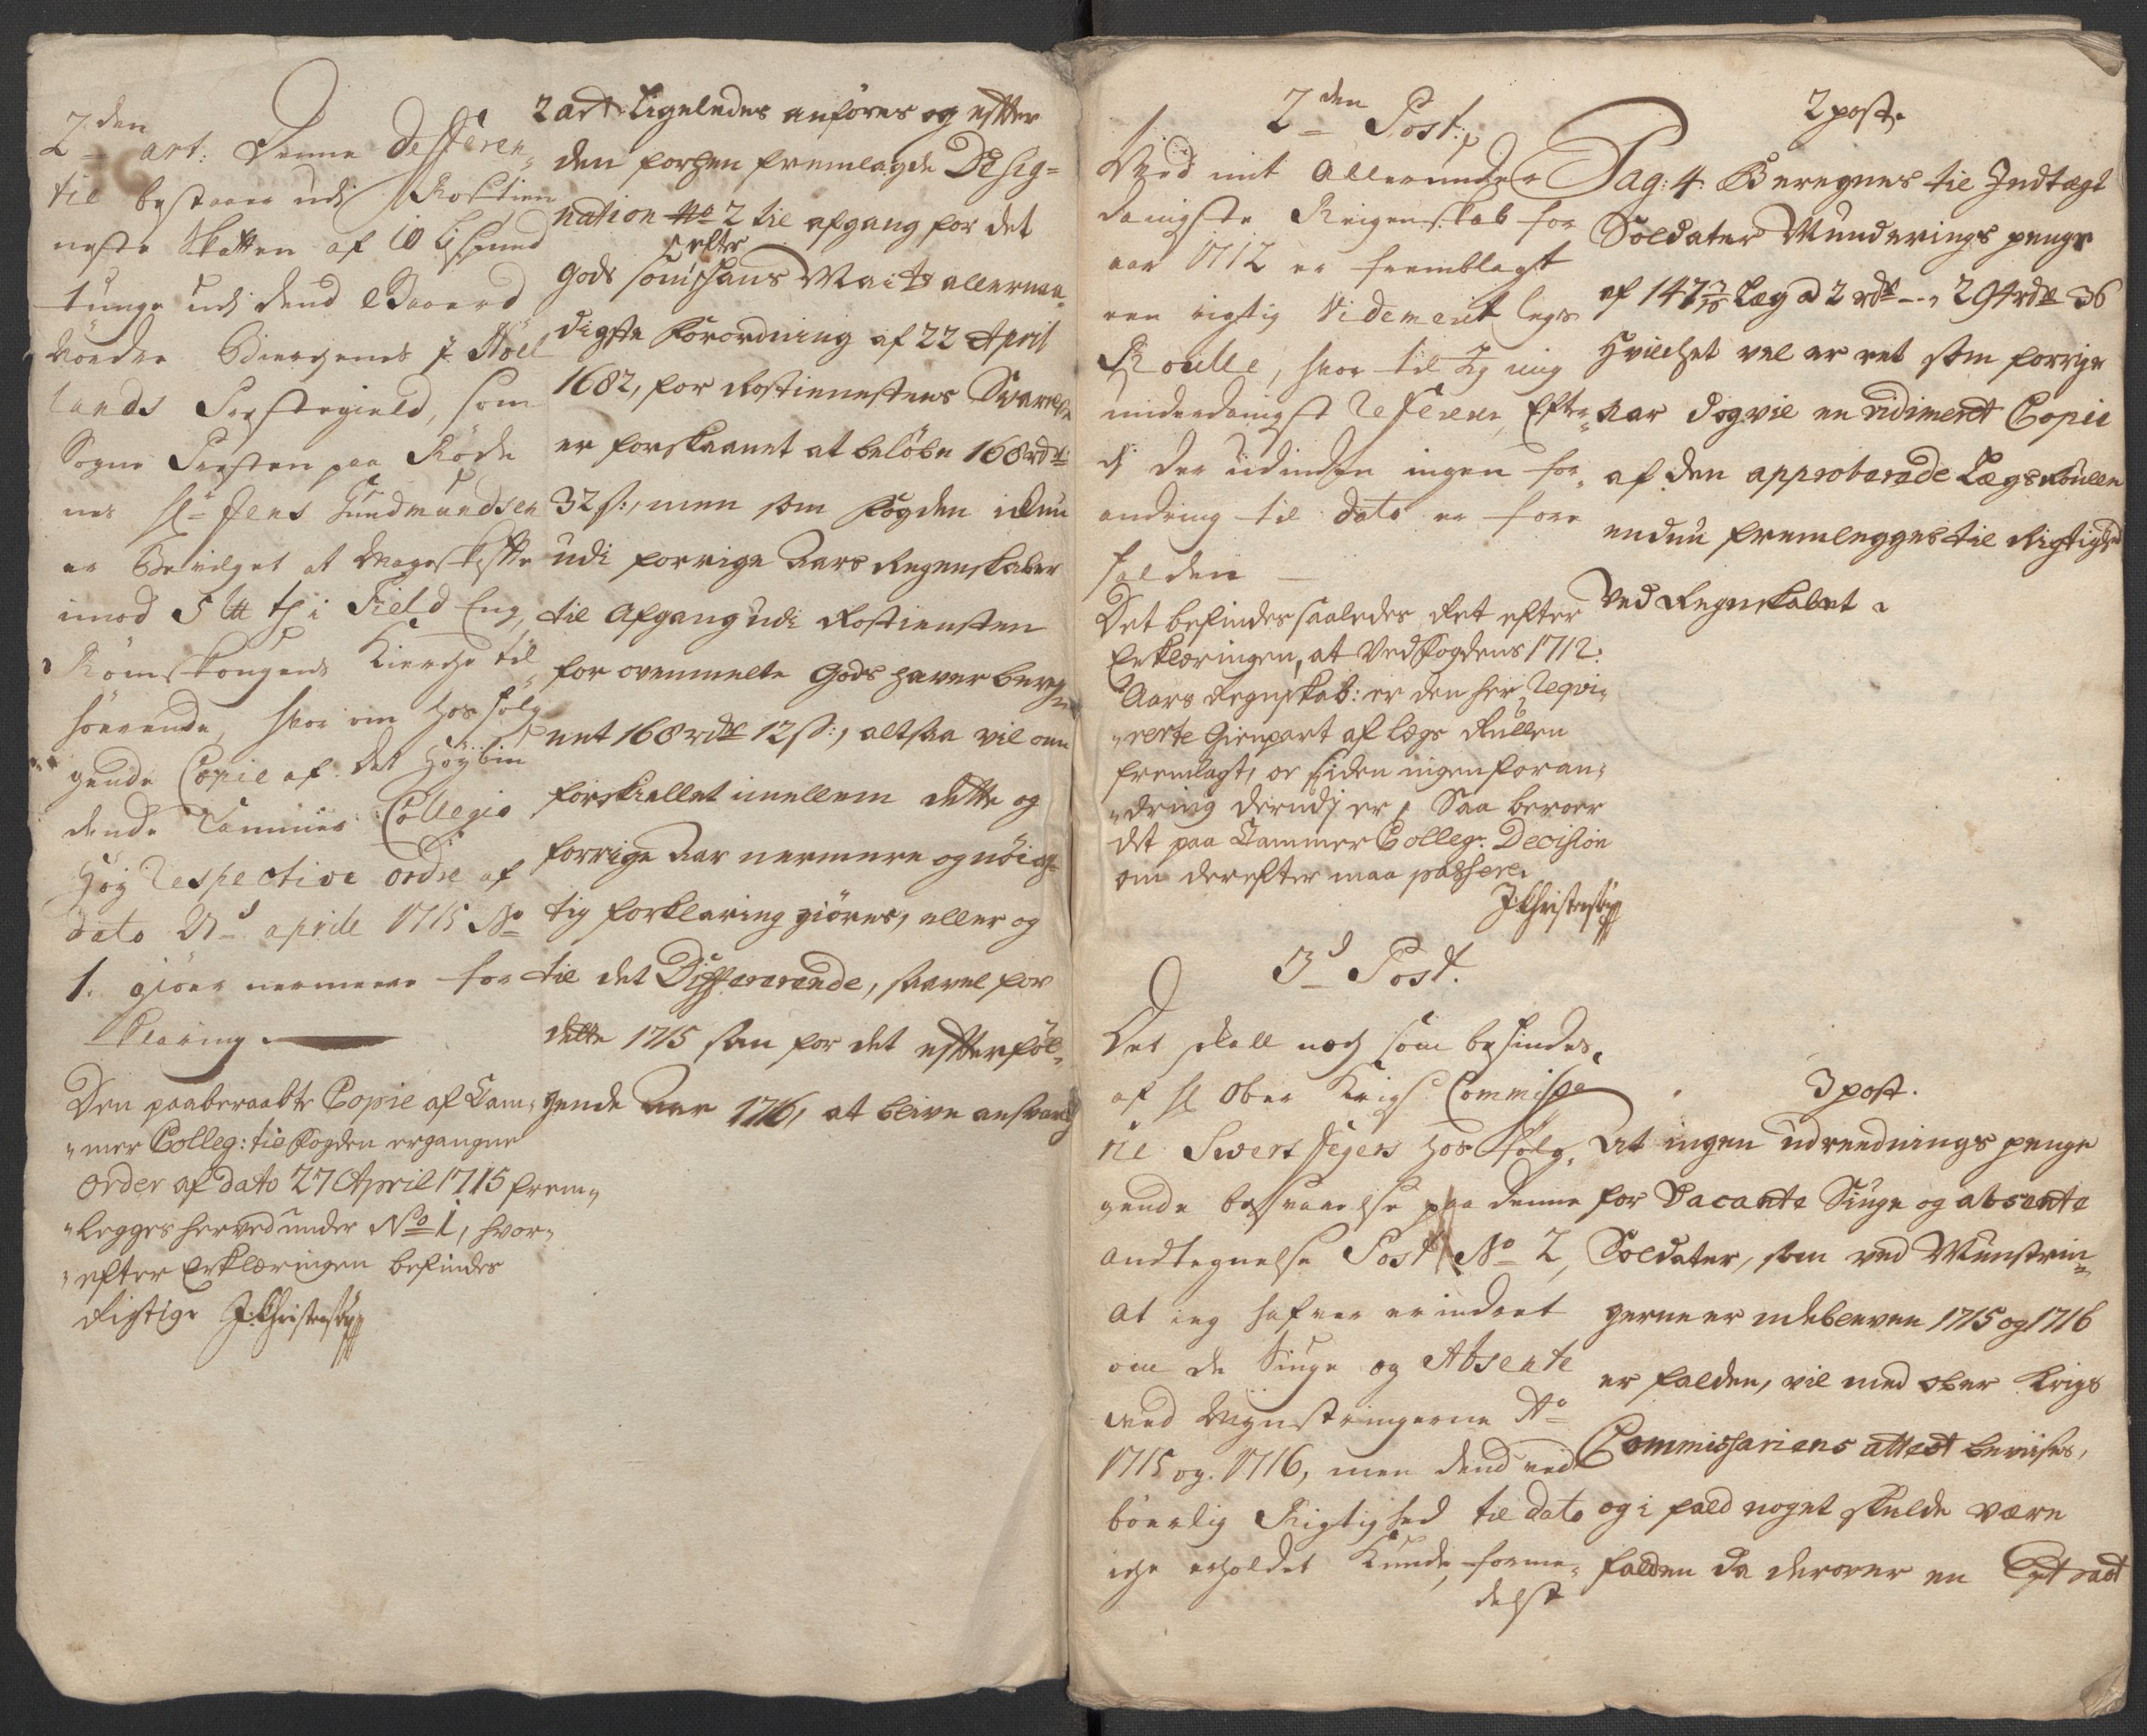 2den art: Denne Defferen„
tie bestaar udj Rostien
neste Skatten af 10 Lispund
tunge udj dend Gaard
nordre Biergenes i Høl
lands Prestegield, som
Sogne Presten paa Røde
nes Hr Jens Gundmundsen
er Bevilget at Mageskifte
imod 5 ℔ th i Field Eng,
Römskougens Kierche til„
hörende, hvor om hos fölg„
gende Copie af det Höybiu
dende Cammer Collegio
Höy Respective ordre af
dato 27d aprile 1715 No
1. giöer nermere for
klaring.
Den paaberaabte Copie af Cam„
„mer Colleg: til Fogden ergangne
Order af dato 27 April 1715 frem„
„legges herved under No 1, hvor„
„efter Erklæringen befindes
Rigtig J Christensen
2 art: Ligeledes anföres og efter
den forhen fremlagde Desig=
nation No 2 til afgang for det
gods som efter hans Maits allernaa„
digste Forordning af 22 April
1682, for Rostienestens Svarelse
er forskaanet at belöbe 168 rdr
32 s:, men som Fogden ickun
udi forrige Aars Regenskaber
til Afgang udi Rostiensten
for ovenmelte Gods haver bereg„
net 168 rdr 12 s:, altsaa vil om
forskiellet imellem dette og
forrige Aar nermere og nöiag„
tig forklaring giöres, eller og
til det Differerende, saavel for
dette 1715 som for det efterföl„
gende Aar 1716, at blive ansvarlig
2den Post:
Ved mit Allerunder
danigste Reigenskab for
aar 1712 er fremblagt
een rigtig Videmeret legs
Roulle, hvor til Jeg mig
underdanigst Refererer, Efter„
di der udinden ingen for„
andring til dato er fore
falden
Det befindes saaledes Ret efter
Erklæringen, at Ved Fogdens 1712:
Aars Regnskab: er den her Reqvi„
„rerte Gienpart af Legs Rullen
fremlagt, og siden ingen foran„
„dring derudj er, Saa beroer
det paa Cammer Colleg: Decision
om derefter maa passere.
J Christensen
3d Post.
Det skall nock som befindes
af Hr Ober Krigs Commissa
rie Swert Jegers hos fölg„
gende besvarelse paa denne
andtegnelse Post No 2,
at ieg hafver erindret
om de Siuge og Absente
ved Mynstringerne Ao
1715 og 1716, men dend ved
börlig Rigtighed til dato
iche erholdet Kunde, forme„
delst
2 post.
Pag: 4. Beregnes til Indtægt
Soldater Munderings penge
af 147 7/10 Læg a 2 rdr – „ 294 rdr 36
Hvilchet vel er ret som forrige
Aar dog vil en vidimeret Copie
af den approberede Lægs Roulle
endnu fremlegges til Rigtighed
Ved Regnskabet
3 post.
At ingen udreednings penge
for Vacante Siuge og absente
Soldater, som ved Munstrin„
gerne er udebleven 1715 og 1716
er falden, vil med Ober Krigs
Commissariens attest beviises,
og i fald noget skulde være
falden da derover en Extract